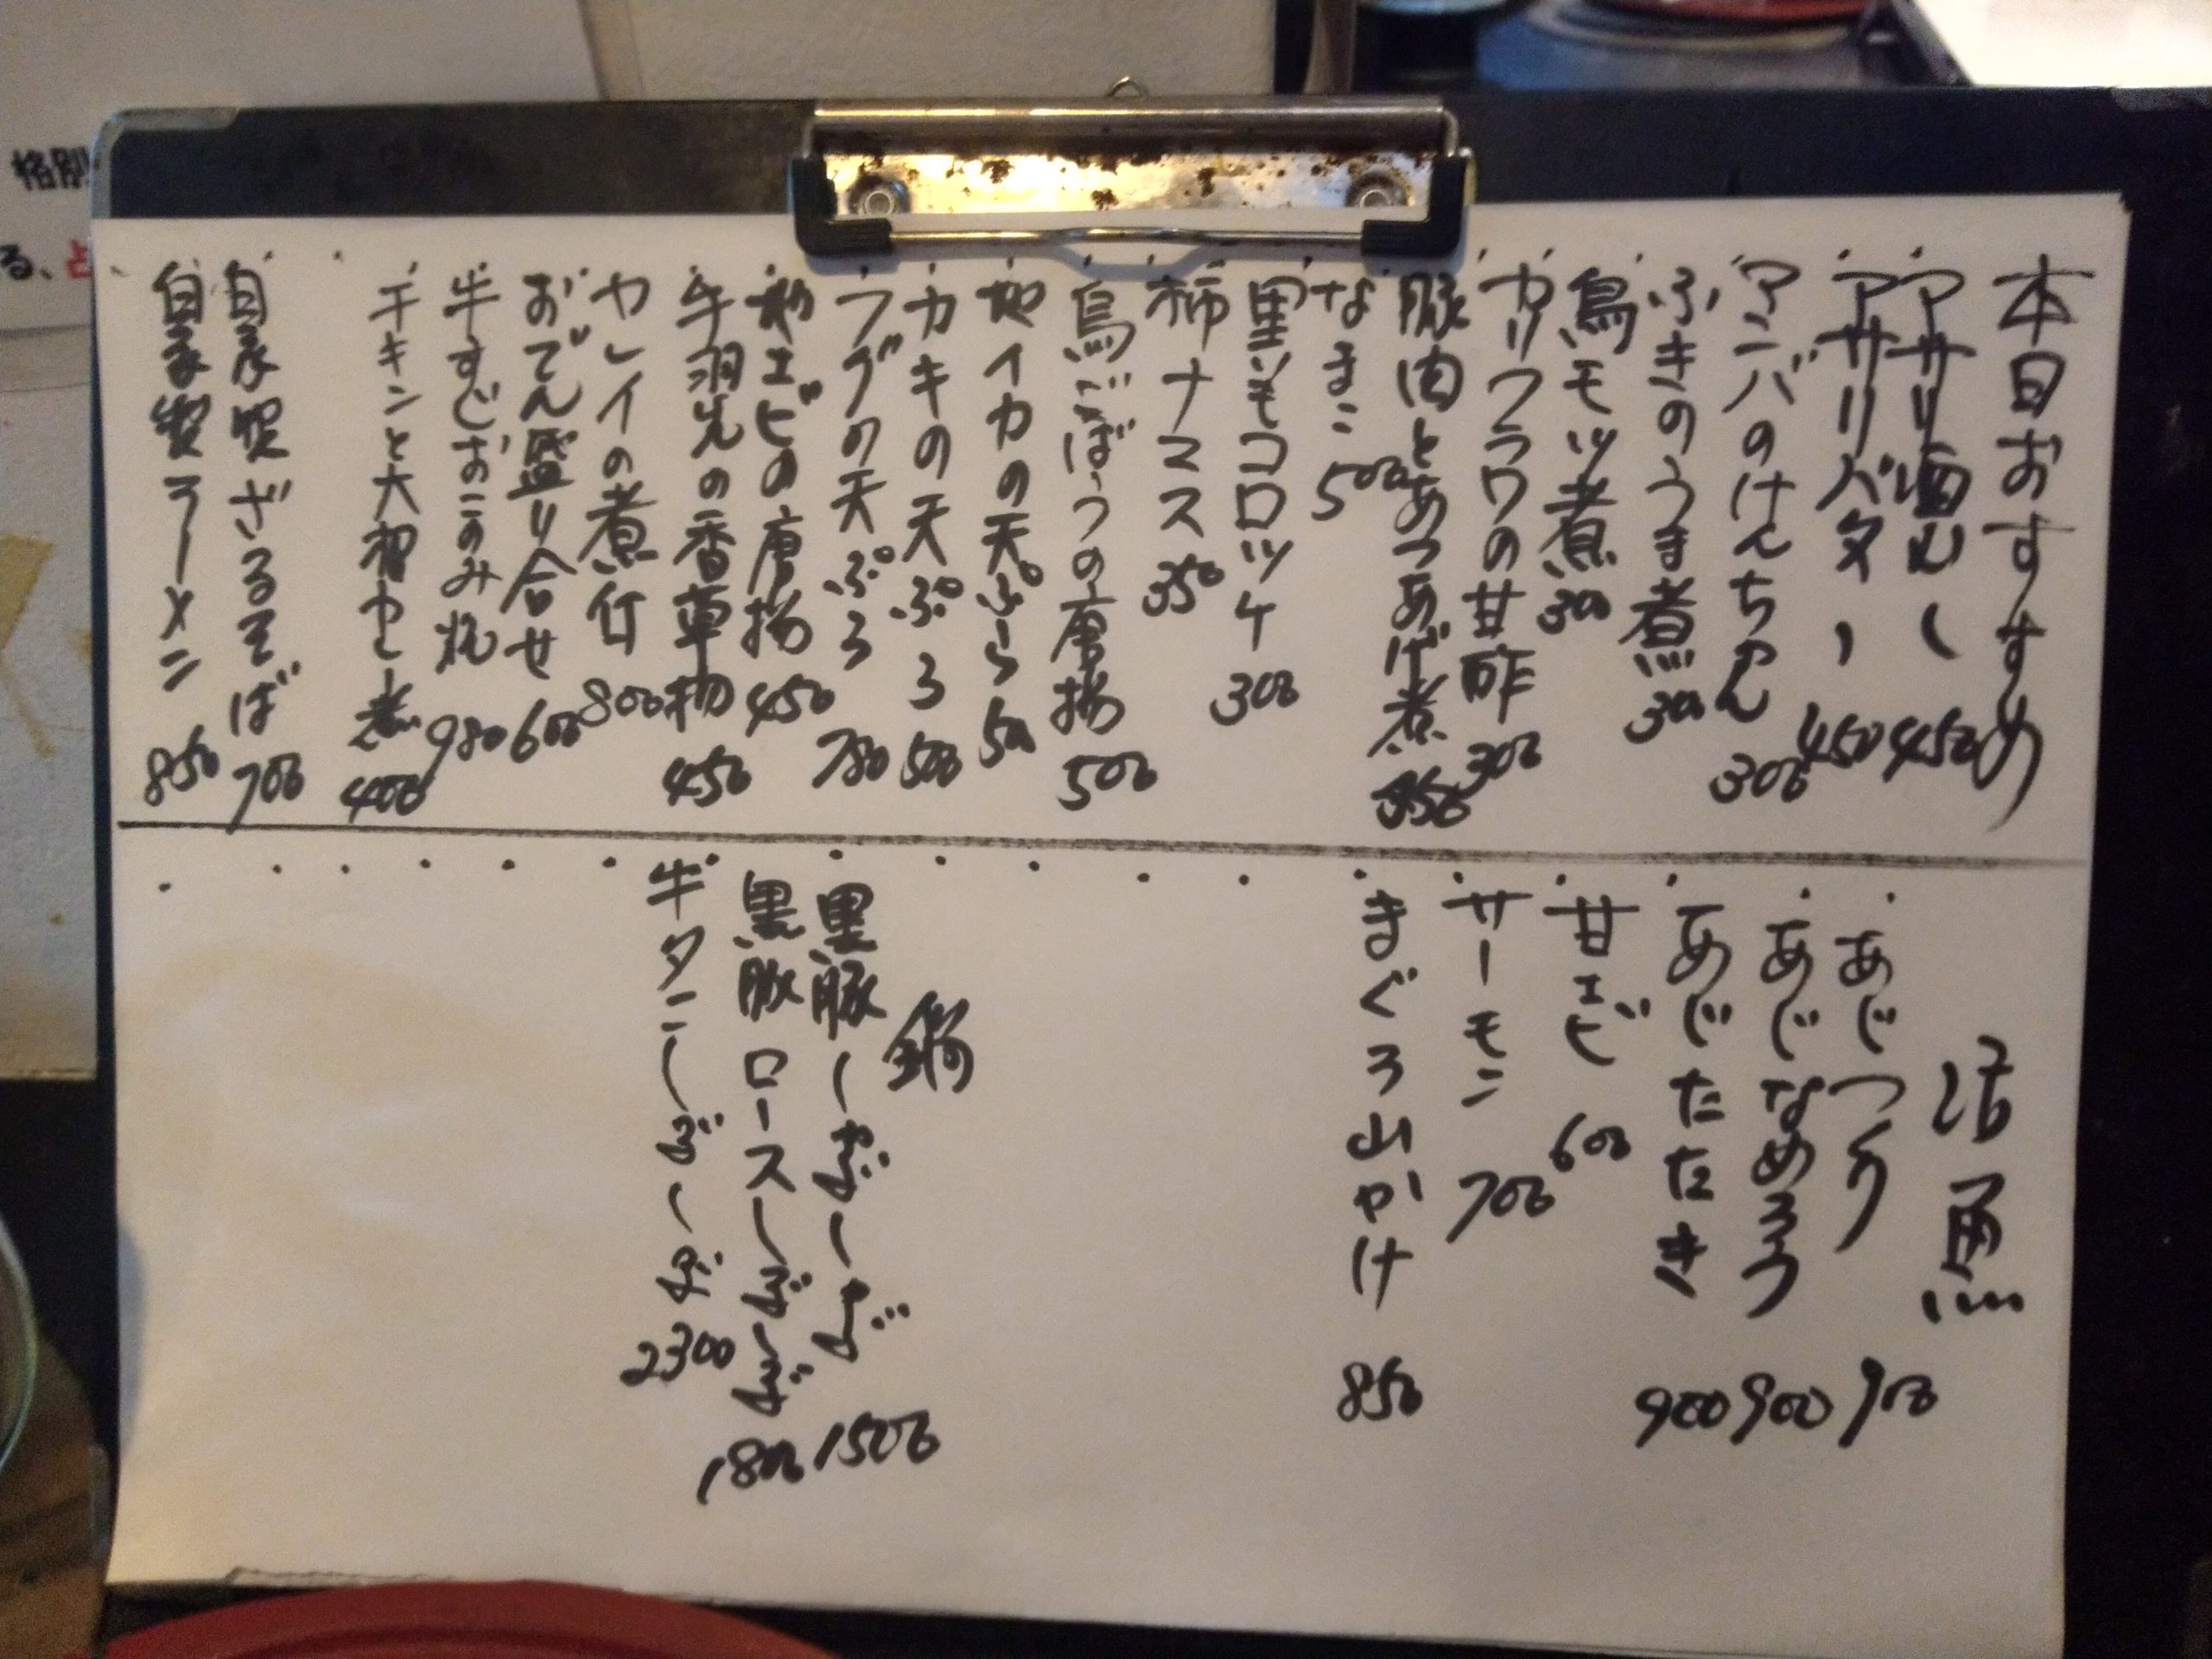 本日おすすめ
アサリ酒むし 450
アサリバター 450
アンバのけんちゃん 300
ふきのうま煮 300
鳥モツ煮 300
カリフラワの甘酢 300
豚肉とあつあげ煮 350
なまこ 500
里いもコロッケ 300
柿ナマス 350
鳥ごぼうの唐揚 500
地イカの天ぷら 500
カキの天ぷら 500
フグの天ぷら 780
エビの唐揚 450
手羽先の香草揚 450
カレイの煮付 800
おでん盛り合せ 600
牛すじおこのみ焼 980
チキンと大根やし煮 400
自家製ざるそば 700
自家製ラーメン 850
活魚
あじつくり 900
あじなめろう 900
あじたたき 900
甘エビ 600
サーモン 700
まぐろ山かけ 850
鍋
黒豚しゃぶしゃぶ 1500
黒豚ロースしゃぶしゃぶ 1800
牛タンしゃぶしゃぶ 2300
格別
る、